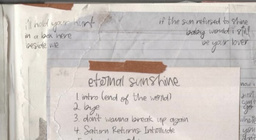 i'll hold your heart
in a box here
beside me
if the sun refused to shine
baby would i still
be your lover
eternal sunshine
1. intro (end of the world)
2. bye
3. don't wanna break up again
4. Saturn Returns Interlude